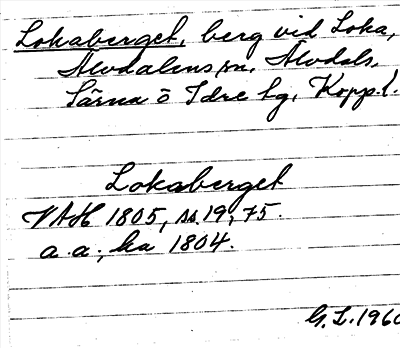 Lokaberget, berg vid Loka,
Älvdalens sn, Älvdals,
Särna o Idre tg, Kopp. l.
Lokaberget
VAH 1805, ss. 19, 75.
a. a., ka 1804.
G. L. 1960